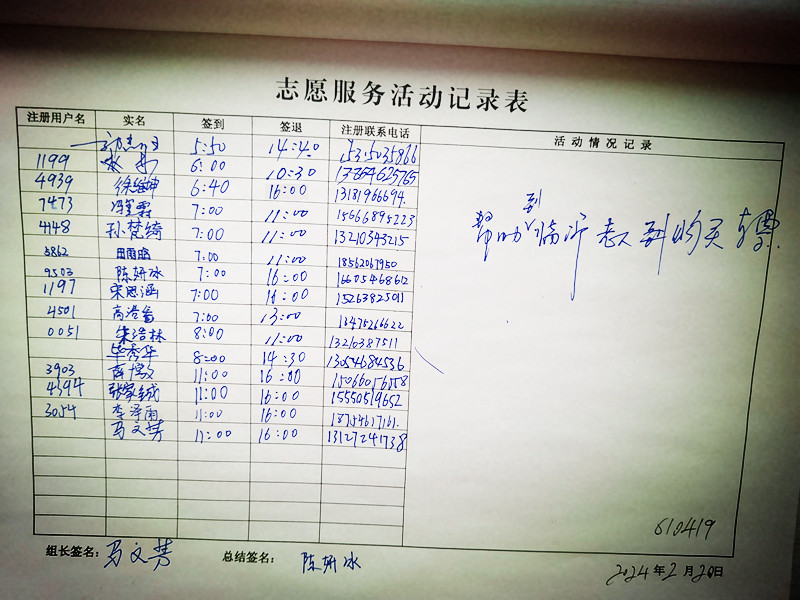 志愿服务活动记录表
注册用户名 实名 签到 签退 注册联系电话 活动情况记录
5:50 14:40
1199 6:00 10:30 13864625765
4939 徐继坤 6:40 16:00 13181966694
7473 7:00 11:00 15666895223
4148 孙梵绮 7:00 11:00 13210343215
3862 7:00 11:00 18562067950
9503 陈妍冰 7:00 16:00 16605468612
1197 宋思涵 7:00 11:00 15263825011
4501 7:00 13:00 13475266622
0051 朱浩林 8:00 11:00 13210387511
毕秀华 8:00 14:30 13054684536
3903 11:00 16:00 15066056158
4394 11:00 16:00 15550519652
3054 李泽雨 11:00 16:00 18754617161
马文芳 11:00 16:00 13127241738
到
帮助临沂 购买车票.
610419
组长签名: 马文芳 总结签名: 陈妍冰 2024年2月20日